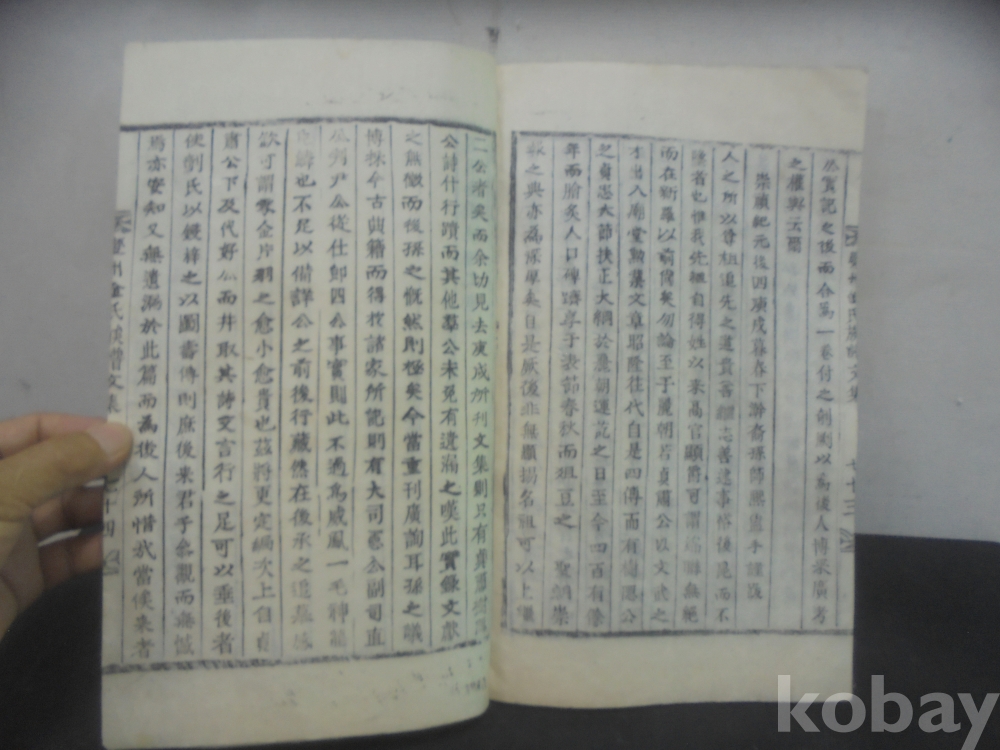 於實記之後而合爲一卷付之剞劂以爲後人博采廣考
之權輿云爾
崇禎紀元後四庚戌暮春下澣裔孫師 盥手謹
人之所以尊祖追先之道貴善繼志善述事恪後尾而不
首也惟我先祖自得姓以來高官顯爵可謂 聯無絕
而在新羅以前尙矣勿論至于麗朝若貞 公以文武之
才出入廟堂勳業文章昭隆往代自是四傳而有 公
之貞忠大節扶正大綱於 朝運 之日至今四百有餘
年而膾炙人口俾躋孝子 節春秋而俎豆之 聖朝崇
之典亦 矣自是厥後非無顯揚名祖可以上繼
二公者矣而余切見去庚戌所刊文集則只有
公詩什行蹟而其他羣公未免有遺漏之嘆此實錄文獻
之無徵而後孫之慨然則極矣今當重刊廣詢耳孫之議
博採今古典籍而得於諸家所記則有大司憲公副司直
公 尹公從仕郎四公事實則此不過爲威鳳一毛神龍
也不足以備詳公之前後行藏然在後承之追慕
欽可謂零金片 之愈小愈貴也玆將更定編次上自貞
肅公下及代好公而并取其詩文言行之足可以垂後者
使剞氏以鋟梓之以圖壽傳則庶後來君子參觀而無憾
焉亦安知又無遺漏於此篇而爲後人所惜哉當俟來者
七十三
十四
kobay